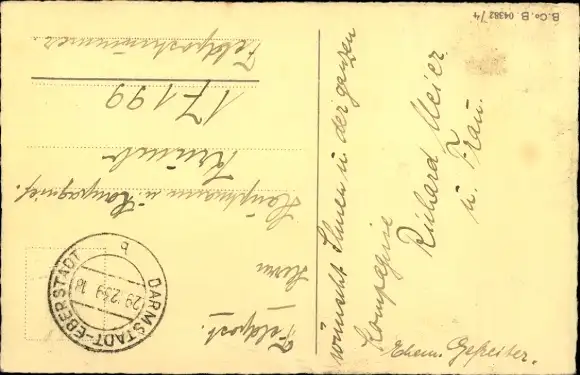 Feldpost.
Herrn
Hauptmann u. Kompanief.
17199
Feldpostnummer.
DARMSTADT-EBERSTADT
29.12.39.18
b
wünscht Ihnen u. der ganzen
Kompagnie
Richard Meier
u. Frau.
Ehem. Gefreiter.
B.Co.B 04382/4